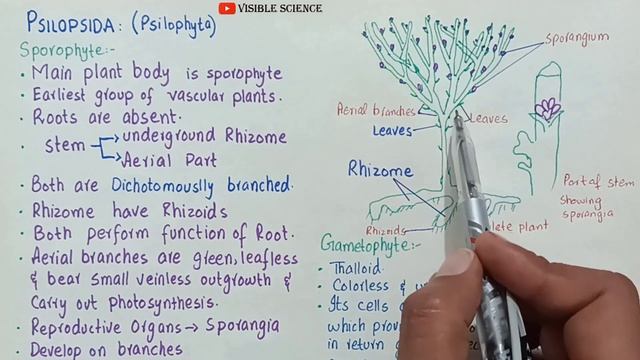 VISIBLE SCIENCE
PSILOPSIDA: (Psilophyta)
Sporophyte:-
• Main plant body is sporophyte
• Earliest group of vascular plants.
• Roots are absent.
• Stem → underground Rhizome
→ Aerial Part
• Both are Dichotomouslly branched.
• Rhizome have Rhizoids
• Both perform function of Root.
• Aerial branches are green, leafless
& bear small veinless outgrowth &
Carry out photosynthesis.
• Reproductive Organs → Sporangia
• Develop on branches
Sporangium
Aerial branches
Leaves
Leaves
Rhizome
Rhizoids
plant
Part of stem
Showing
sporangia
Gametophyte:-
• Thalloid.
• Colorless &
• Its cells
which
in return